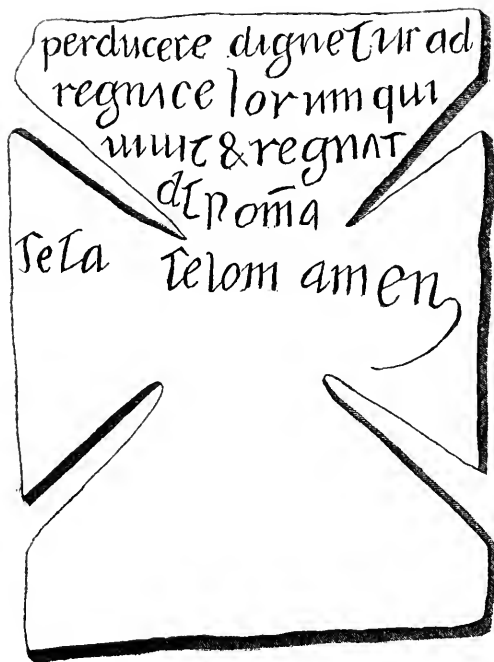 perducere dignetur ad
regnu celorum qui
uiuit & regnat
ds p om̄a
seLa selom amen